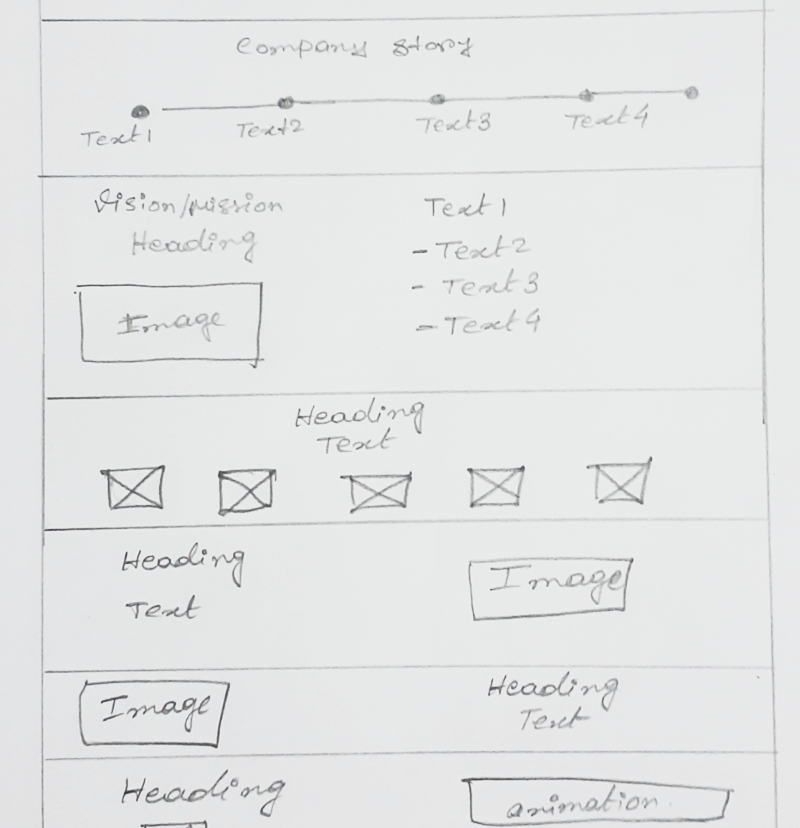 Company story
Text 1 Text2 Text3 Text4
Vision/Mission
Heading
Image
Text 1
- Text2
- Text3
- Text4
Heading
Text
Heading
Text
Image
Image
Heading
Text
Heading
animation.